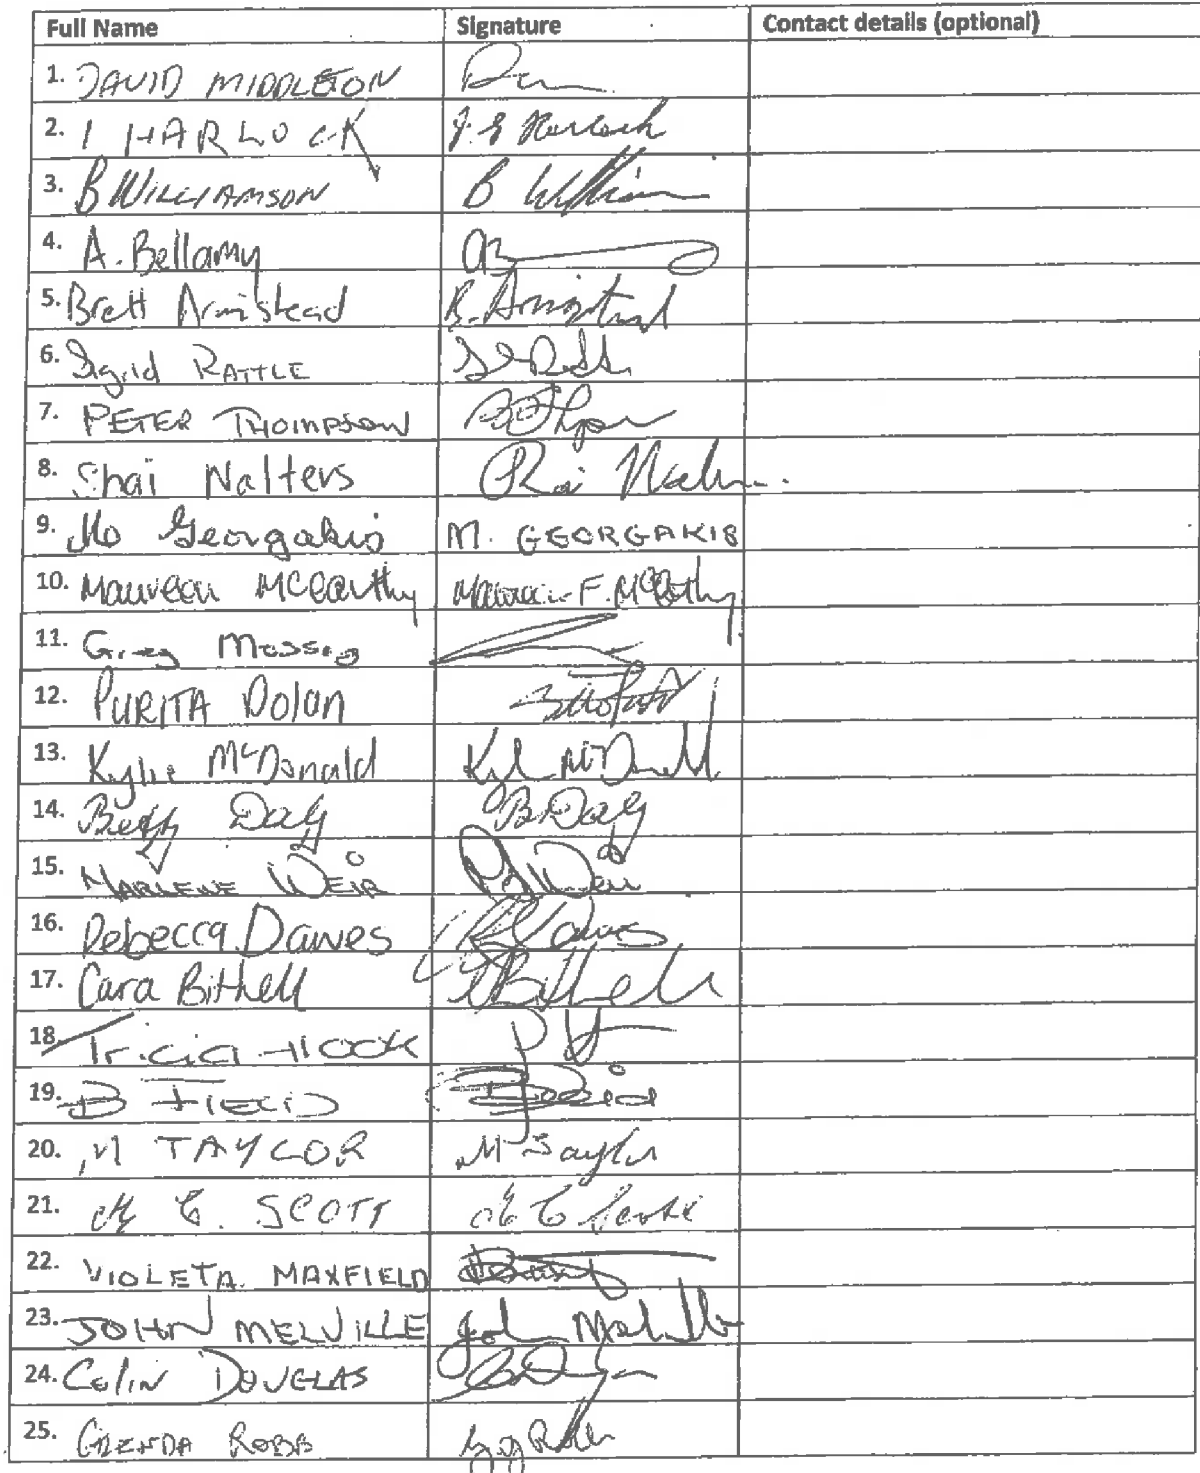 Full Name Signature Contact details (optional)
1. DAVID MIDDLETON
2. I HARLOCK J. E Harlock
3. B WILLIAMSON B William
4. A. Bellamy
5. Brett Armistead B. Armistead
6. Sigrid RATTLE
7. PETER THOMPSON
8. Shai Nalters
9. Mo Georgakis M. GEORGAKIS
10. Maureen McCarthy Maureen F. McCarthy
11. Greg
12. PURITA Dolan
13. Kylie McDonald Kyl McDonald
14. Betty Daly B. Daly
15. MARLENE WEIR Weir
16. Rebecca Dawes R Dawes
17. Cara Bithell CBithell
18. Tricia Hook
19. B FIELD
20. M TAYLOR M Taylor
21. M C. SCOTT M C Scott
22. VIOLETA MAXFIELD
23. JOHN MELVILLE John Melville
24. Colin DOUGLAS
25. GLENDA ROBB